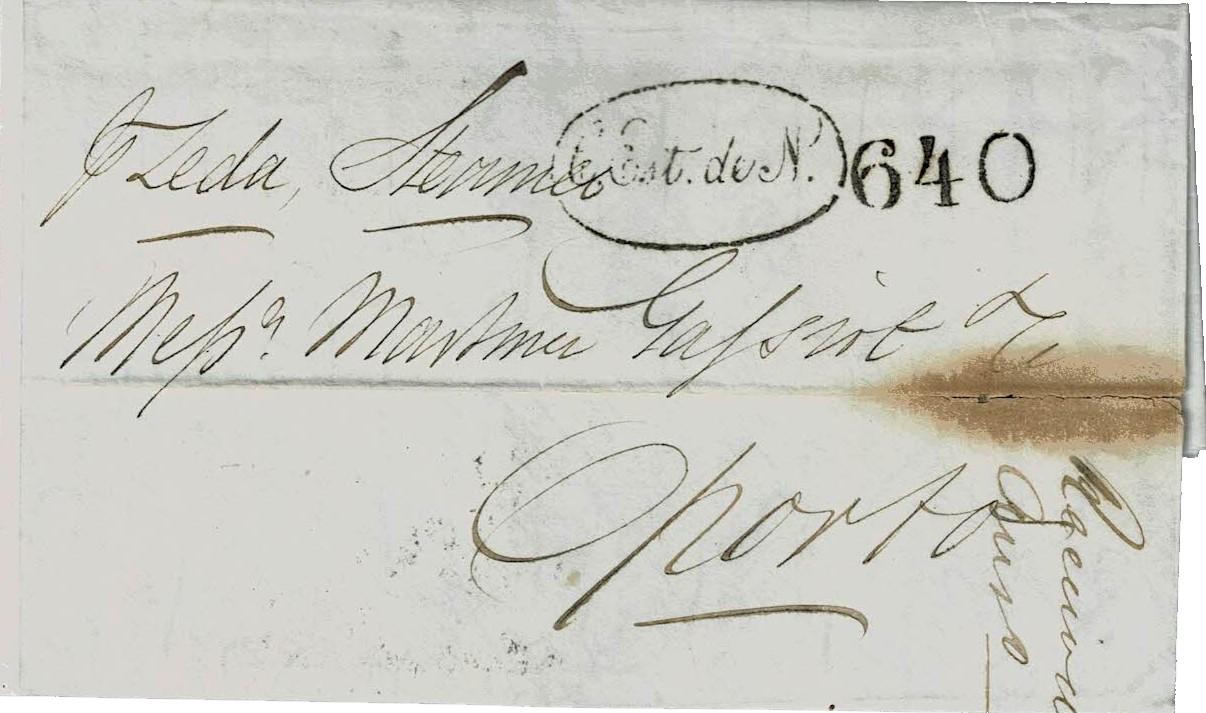 p Leda, Stormer
E. Est. do N.
640
Messrs. Martinez Gassiot & C
Oporto